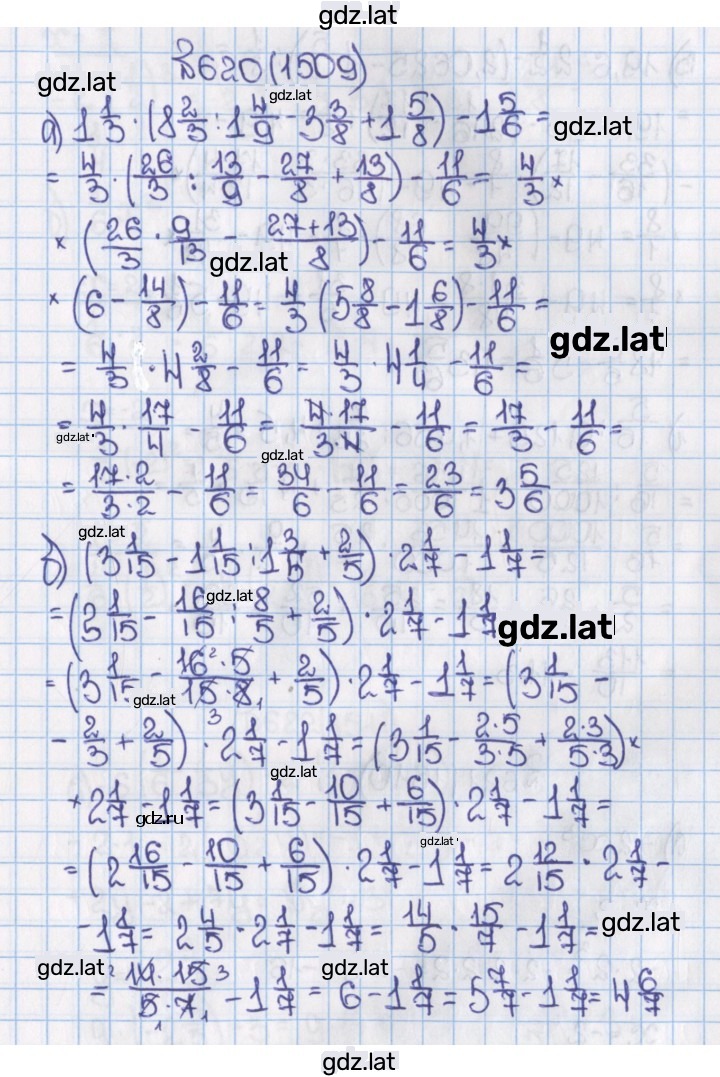 gdz.lat
№620(1509)
gdz.lat
gdz.lat
а) 1 1/3 · (8 2/3 : 1 4/9 - 3 3/8 + 1 5/8) - 1 5/6 =
gdz.lat
= 4/3 · (26/3 : 13/9 - 27/8 + 13/8) - 11/6 = 4/3 ×
× (26/3 · 9/13 - 27+13/8) - 11/6 = 4/3 ×
gdz.lat
× (6 - 14/8) - 11/6 = 4/3 (5 8/8 - 1 6/8) - 11/6 =
gdz.lat
= 4/3 · 4 2/8 - 11/6 = 4/3 · 4 1/4 - 11/6 =
= 4/3 · 17/4 - 11/6 = 4·17/3·4 - 11/6 = 17/3 - 11/6 =
gdz.lat
gdz.lat
= 17·2/3·2 - 11/6 = 34/6 - 11/6 = 23/6 = 3 5/6
gdz.lat
б) (3 1/15 - 1 1/15 : 1 3/5 + 2/5) · 2 1/7 - 1 1/7 =
gdz.lat
= (3 1/15 - 16/15 : 8/5 + 2/5) · 2 1/7 - 1 1/7
gdz.lat
= (3 1/15 - 16²·5/15·8₁ + 2/5) · 2 1/7 - 1 1/7 = (3 1/15 -
gdz.lat
- 2/3 + 2/5) · 2 1/7 - 1 1/7 = (3 1/15 - 2·5/3·5 + 2·3/5·3) ×
gdz.lat
× 2 1/7 - 1 1/7 = (3 1/15 - 10/15 + 6/15) · 2 1/7 - 1 1/7 =
gdz.ru
gdz.lat
= (2 16/15 - 10/15 + 6/15) · 2 1/7 - 1 1/7 = 2 12/15 · 2 1/7 -
- 1 1/7 = 2 4/5 · 2 1/7 - 1 1/7 = 14/5 · 15/7 - 1 1/7 =
gdz.lat
gdz.lat
gdz.lat
= ²14·15³/₁5·7₁ - 1 1/7 = 6 - 1 1/7 = 5 7/7 - 1 1/7 = 4 6/7
gdz.lat